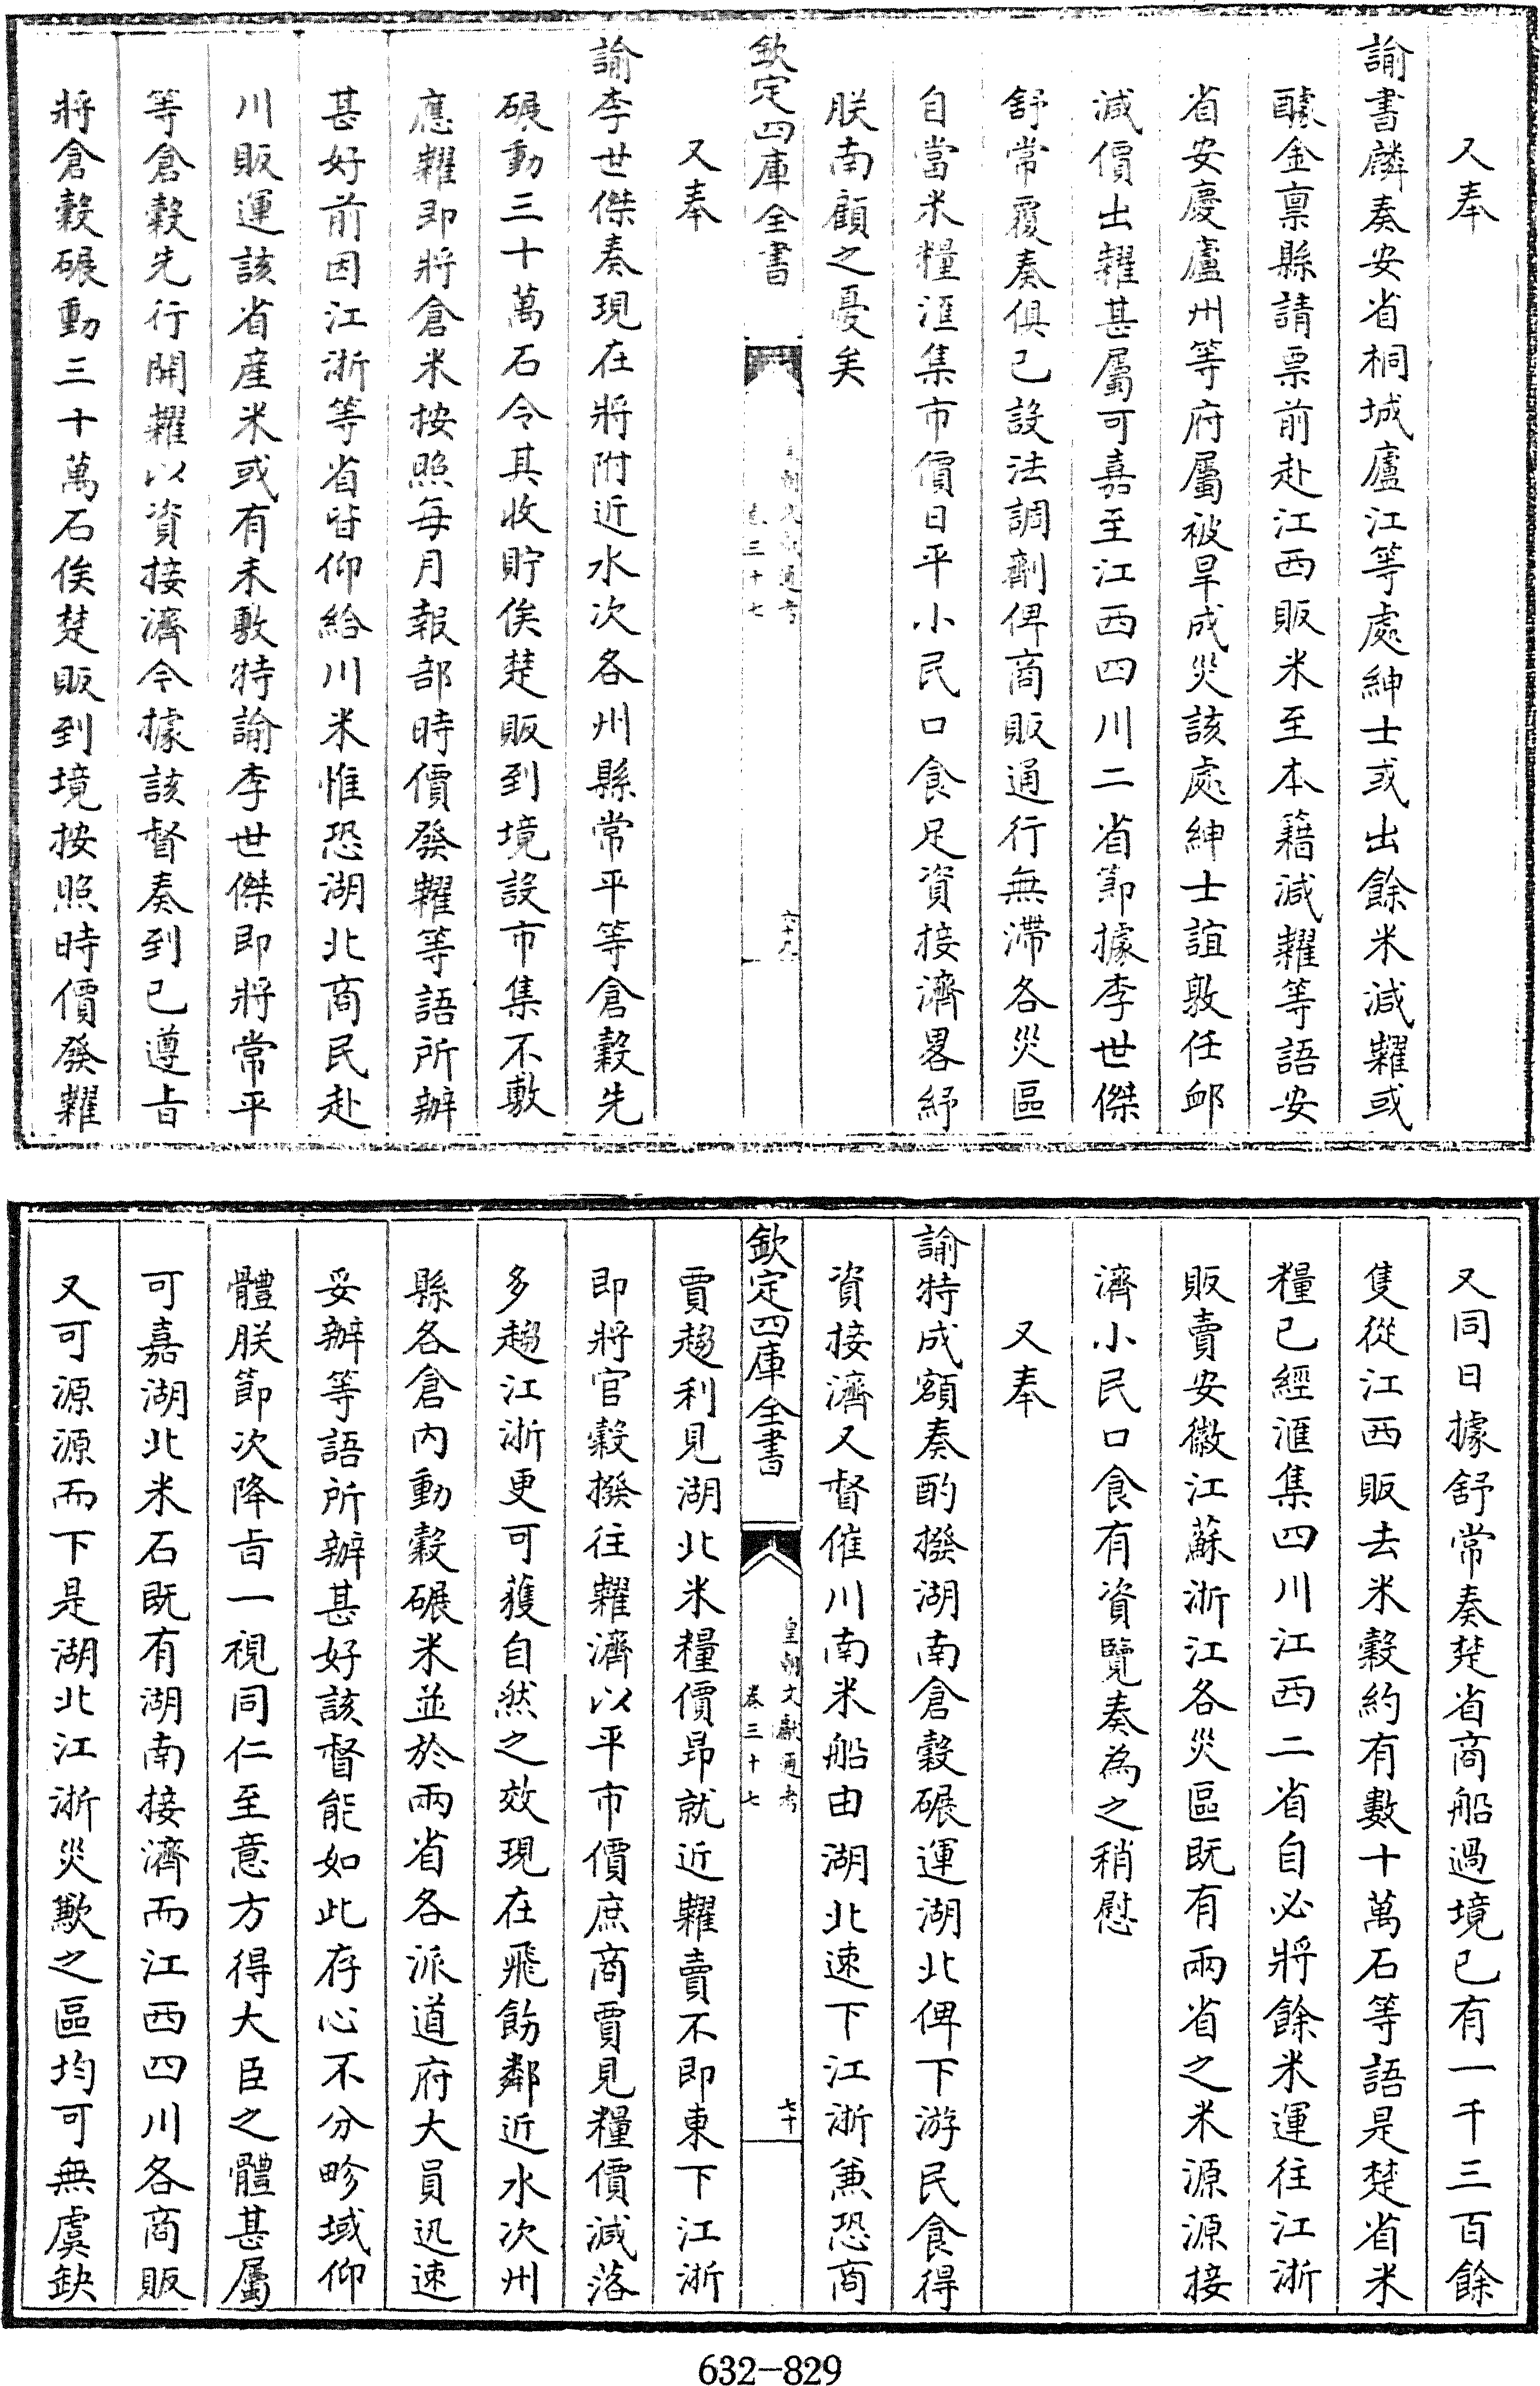 又奉
諭書麟奏安省桐城廬江等處紳士或出餘米減糶或
醵金禀縣請票前赴江西販米至本籍減糶等語安
省安慶廬州等府屬被旱成災該處紳士誼敦任䘏
減價出糶甚屬可嘉至江西四川二省節據李世傑
舒常覆奏俱已設法調劑俾商販通行無滯各災區
自當米糧滙集市價日平小民口食足資接濟畧紓
朕南顧之憂矣
欽定四庫全書
皇朝文獻通考
卷三十七
六十九
又奉
諭李世傑奏現在將附近水次各州縣常平等倉穀先
碾動三十萬石令其收貯俟楚販到境設市集不敷
應糶即將倉米按照每月報部時價發糶等語所辦
甚好前因江浙等省皆仰給川米惟恐湖北商民赴
川販運該省産米或有未敷特諭李世傑即將常平
等倉穀先行開糶以資接濟今據該督奏到已遵㫖
將倉穀碾動三十萬石俟楚販到境按照時價發糶
又同日據舒常奏楚省商船過境已有一千三百餘
隻從江西販去米穀約有數十萬石等語是楚省米
糧已經滙集四川江西二省自必將餘米運往江浙
販賣安徽江蘇浙江各災區既有兩省之米源源接
濟小民口食有資覽奏為之稍慰
又奉
諭特成額奏酌撥湖南倉穀碾運湖北俾下游民食得
資接濟又督催川南米船由湖北速下江浙兼恐商
欽定四庫全書
皇朝文獻通考
卷三十七
七十
賈趨利見湖北米糧價昂就近糶賣不即東下江浙
即將官穀撥往糶濟以平市價庶商賈見糧價減落
多趨江浙更可獲自然之效現在飛飭鄰近水次州
縣各倉內動穀碾米並於兩省各派道府大員迅速
妥辦等語所辦甚好該督能如此存心不分畛域仰
體朕節次降㫖一視同仁至意方得大臣之體甚屬
可嘉湖北米石既有湖南接濟而江西四川各商販
又可源源而下是湖北江浙災歉之區均可無虞缺
632-829